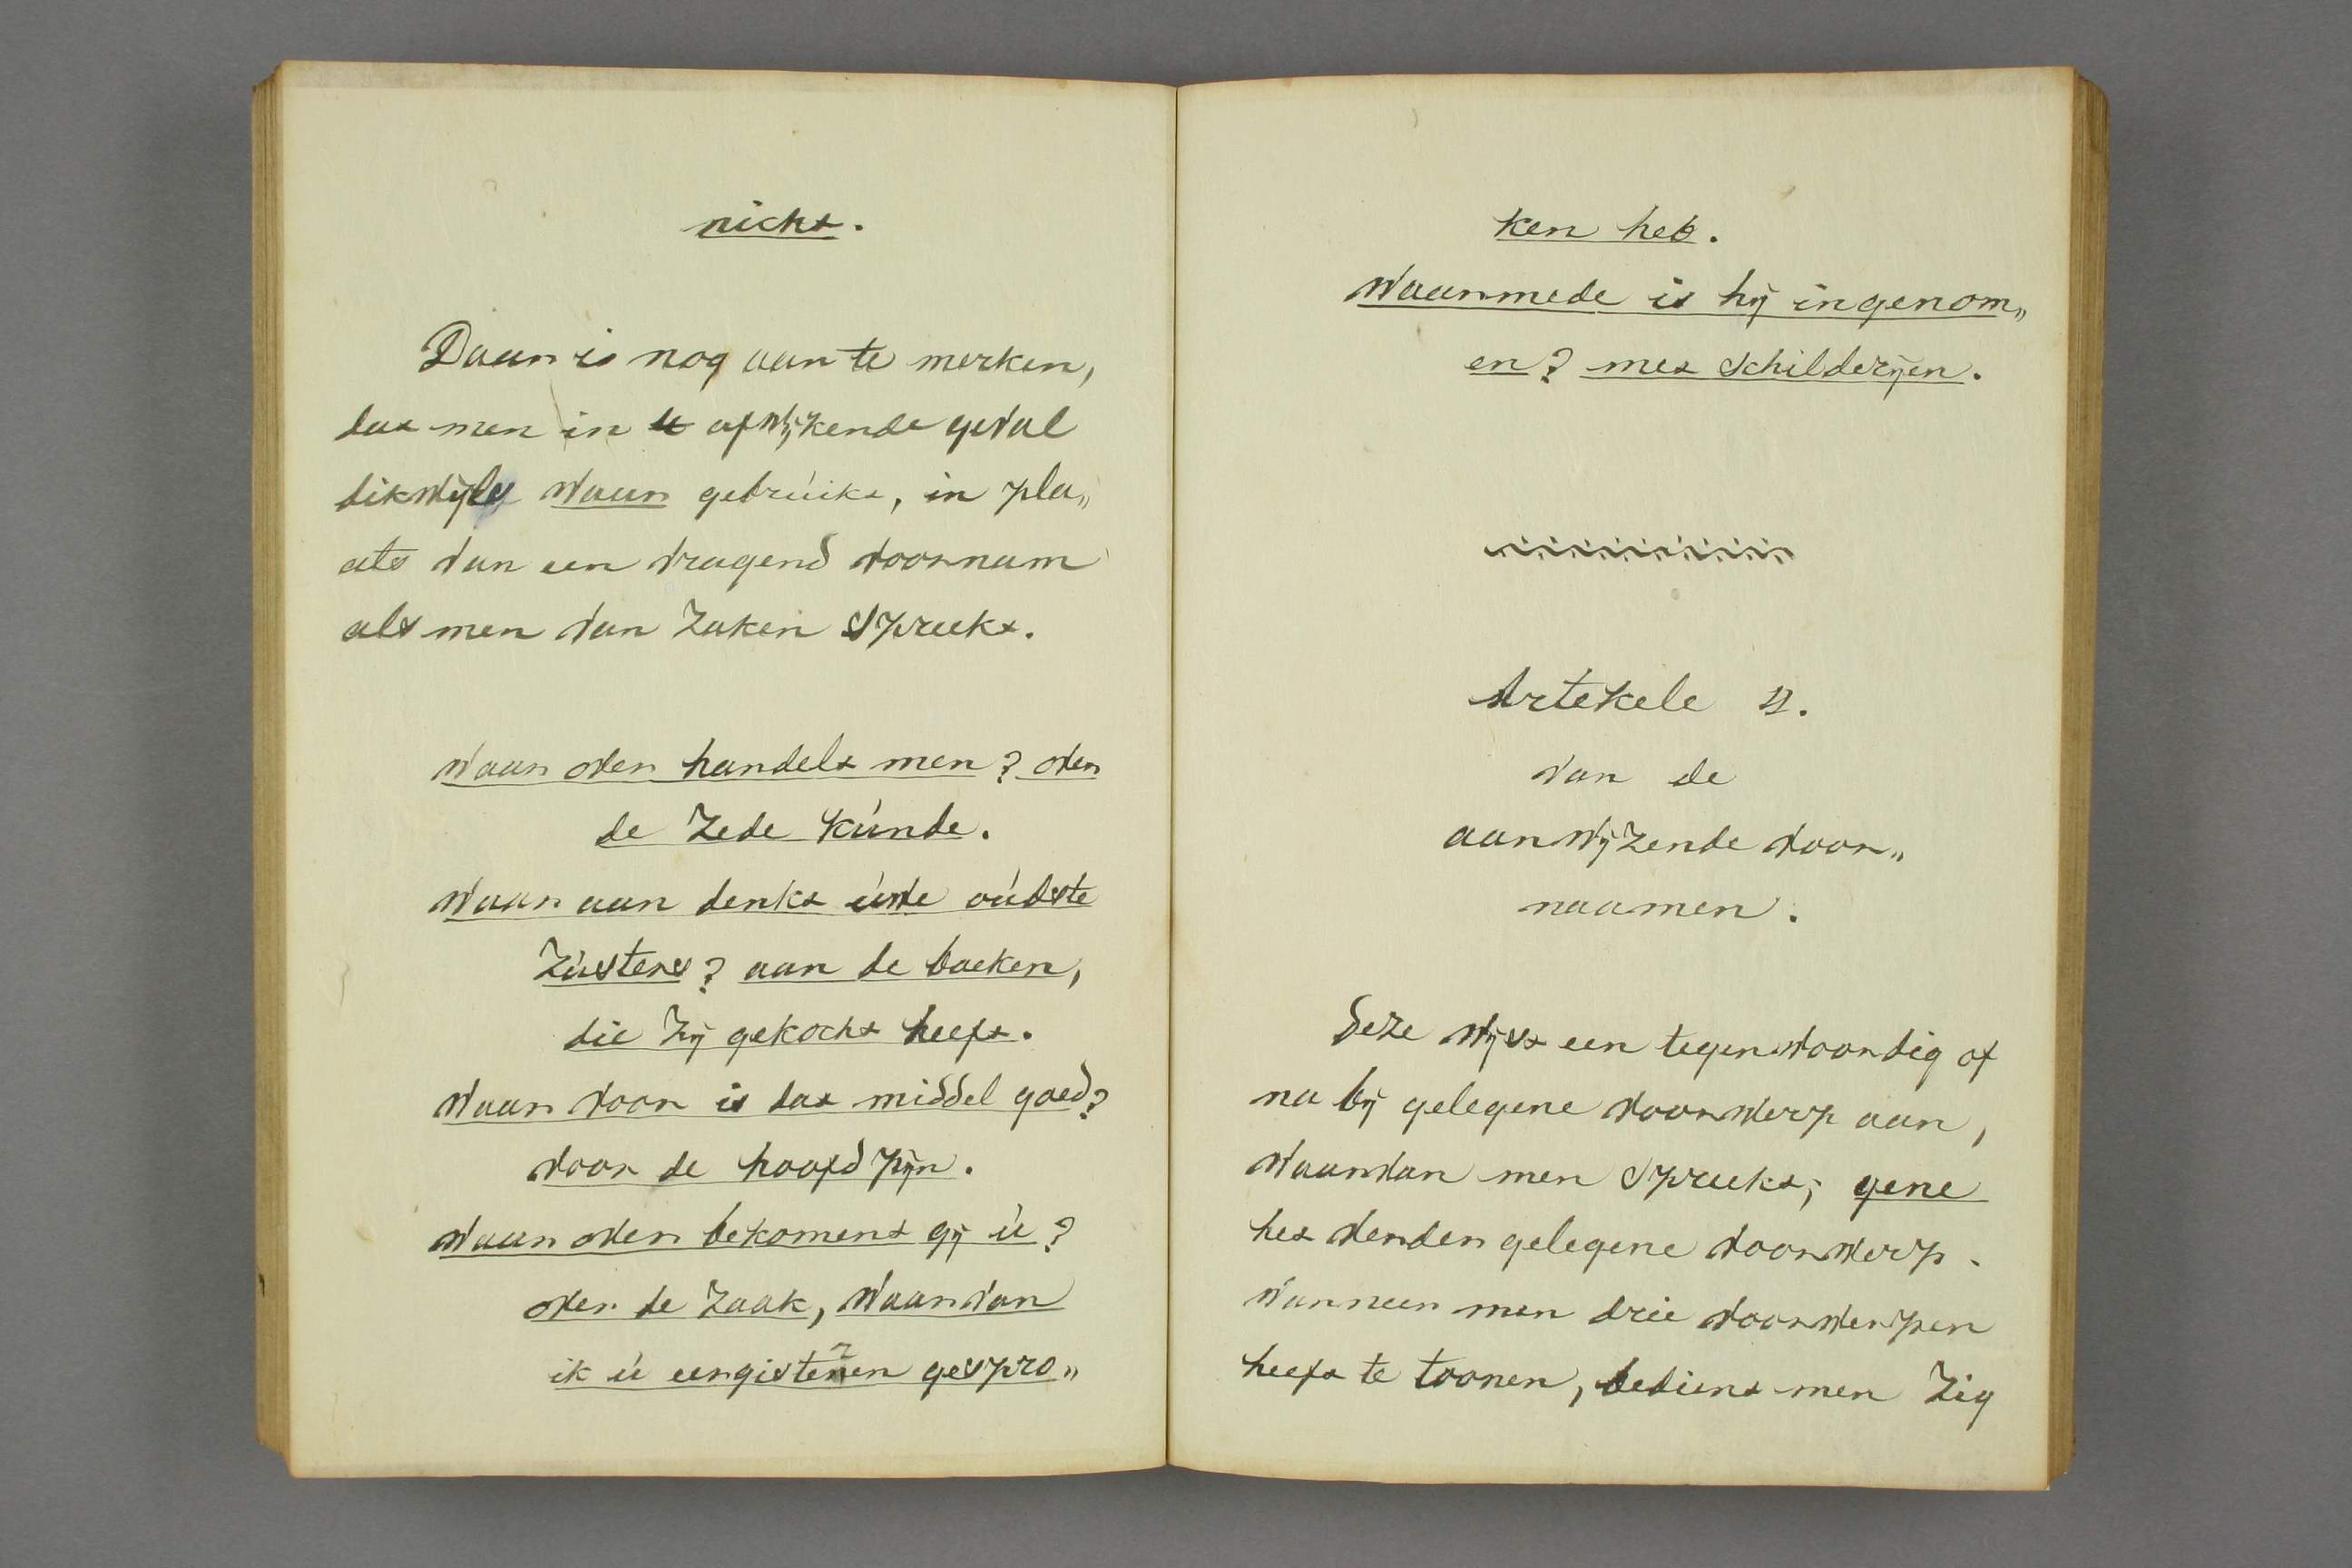 nicht.
Daar is nog aan te merken,
dat men in afwijkende geval
dikwijls waar gebrúikt, in pla„
ats van een vragend voornam
als men van Zaken Spreekt.
waar over handelt men? over
de Zede Kúnde.
waar aan denkt úwe oúdste
Zústers? aan de boeken,
die Zij gekocht heeft.
waar voor is dat middel goed?
voor de hoofd pijn.
waar over bekomert gij ú?
over de Zaak, waarvan
ik ú eergisteren gespro„
ken heb.
waarmede is hij ingenom„
en? met Schilderijen.
Artekele 4.
van de
aanwijZende voor„
naamen.
deze wijst een tegenwoordig of
na bij gelegene voorwerp aan,
waarvan men Spreekt; gene
het verder gelegene voorwerp.
wanneer men drie voorwerpen
heeft te toonen, bedient men Zig